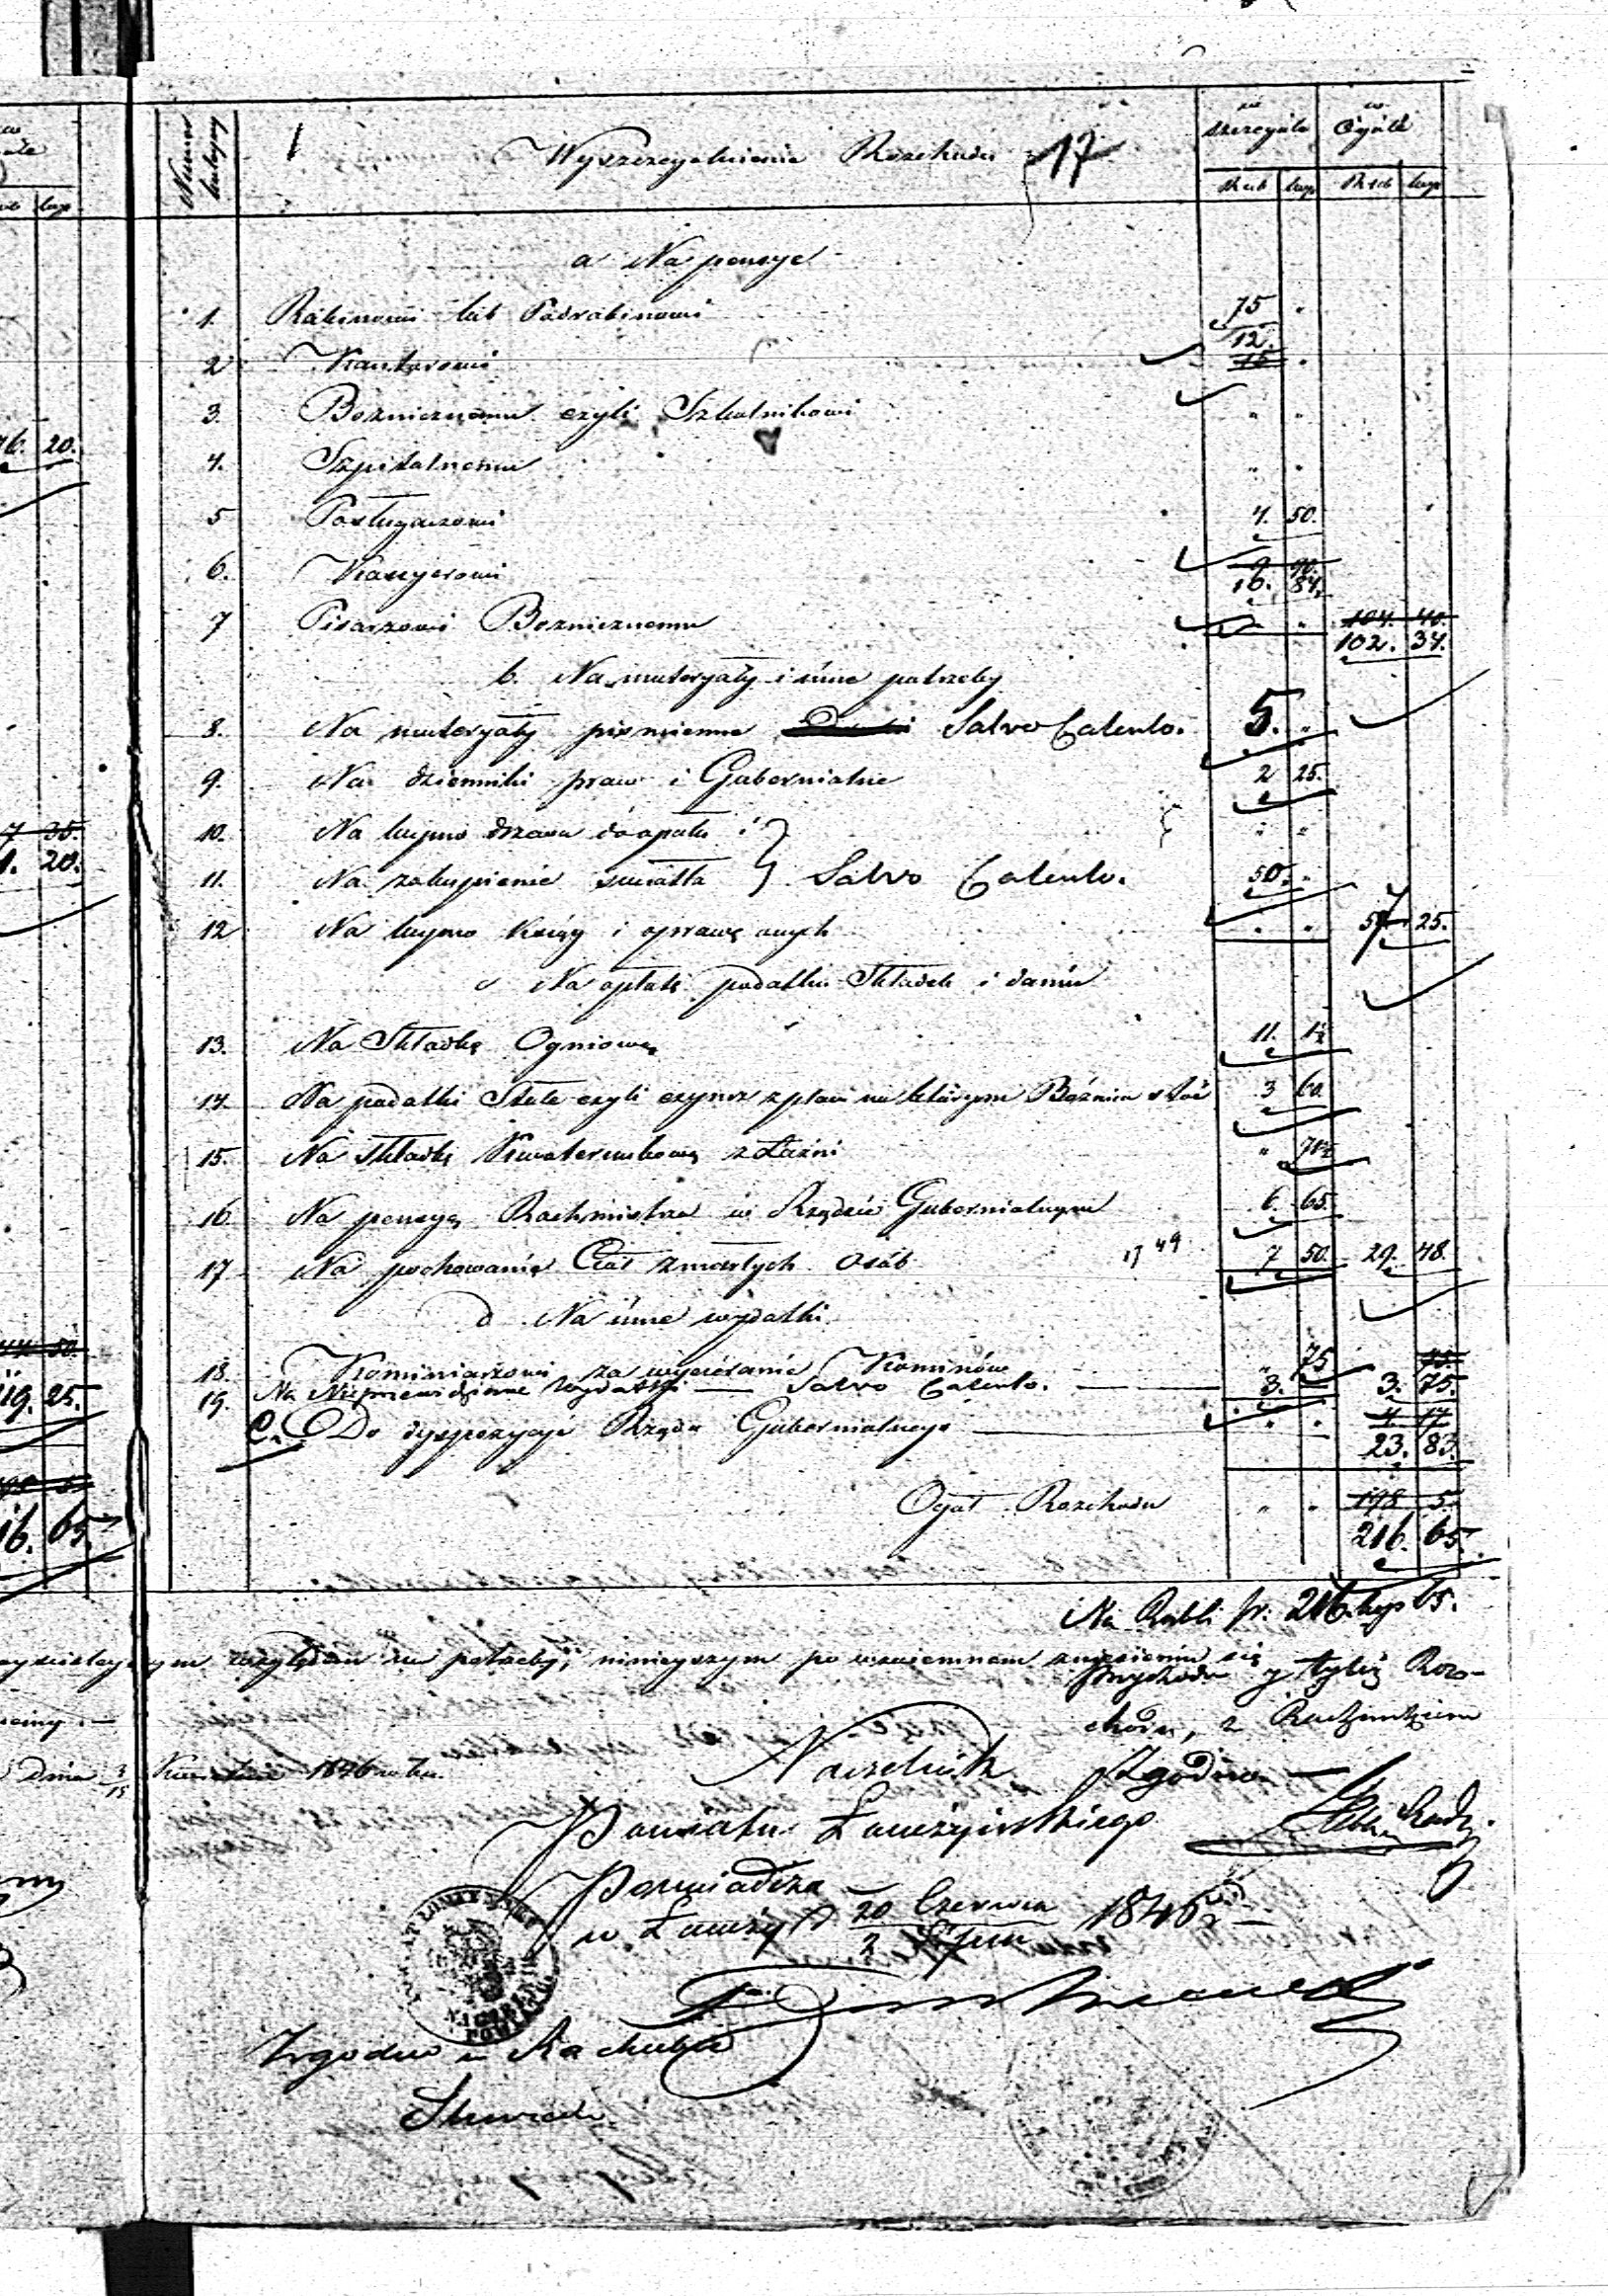 w szczególe
w Ogóle
Numer kolejny
Wyszczególnienie Rozchodu
17
Rsub kop Rsub kop
a Na pensye
1. Rabinowi lub Podrabinowi 75 "
2 Kantorowi 12. 15 "
3. Boznicznemu czyli Szkolnikowi " "
4. Szpitalnemu " "
5 Posługaczowi 4. 50.
6. Kassyerowi 9. 90. 10. 84.
7 Pisarzowi Boznicznemu " " 104. 40. 102. 34.
b. Na materyały i inne potrzeby
8. Na materyały piśmienne Salvo Calculo. 5. "
9. Na dzienniki praw i Gubernialne 2 25.
10. Na kupno drzewa do opału i } " "
11. Na zakupienie światła } Salvo Calculo. 50. "
12 Na kupno Ksiąg i oprawę onych " " 57 25.
c Na opłatę podatku Składek i danin
13. Na Składkę Ogniową 11. 1½
14. Na podatki Stałe czyli czynsz z placu na którym Bóżnica stoi 3 60.
15. Na Składkę Kwaterunkową z Łaźni " 71½
16 Na pensyę Rachmistrza w Rządzie Gubernialnym 6. 65.
17 Na pochowanie Ciał zmarłych osób 17 49 7 50. 29. 48.
d Na inne wydatki
18. Kominiarzowi za wycieranie Kominów " 75 75.
19. Na Nieprzewidziane Wydatki — Salvo Calculo. — 3. — 3. 75.
e. Do dyspozycyi Rządu Gubernialnego " " 4 17 23. 83.
Ogół Rozchodu " " 198 5. 216. 65.
Na Rubli sr: 216. kop 65.
względem potrzeby, niniejszym po wzaiemnem zniesieniu się
Przychodu y tyleż Roz-
chodu, z Rachunkiem
Zgodno —
dnia 3/15 Kwietnia 1846 roku.
Naczelnik
Powiatu Łomżyńskiego
Poswiadcza
w Łomży d 20 Czerwca / 2 Lipca 1846 r
NACZELNIK POWIATU
Zgodno w Rachubie